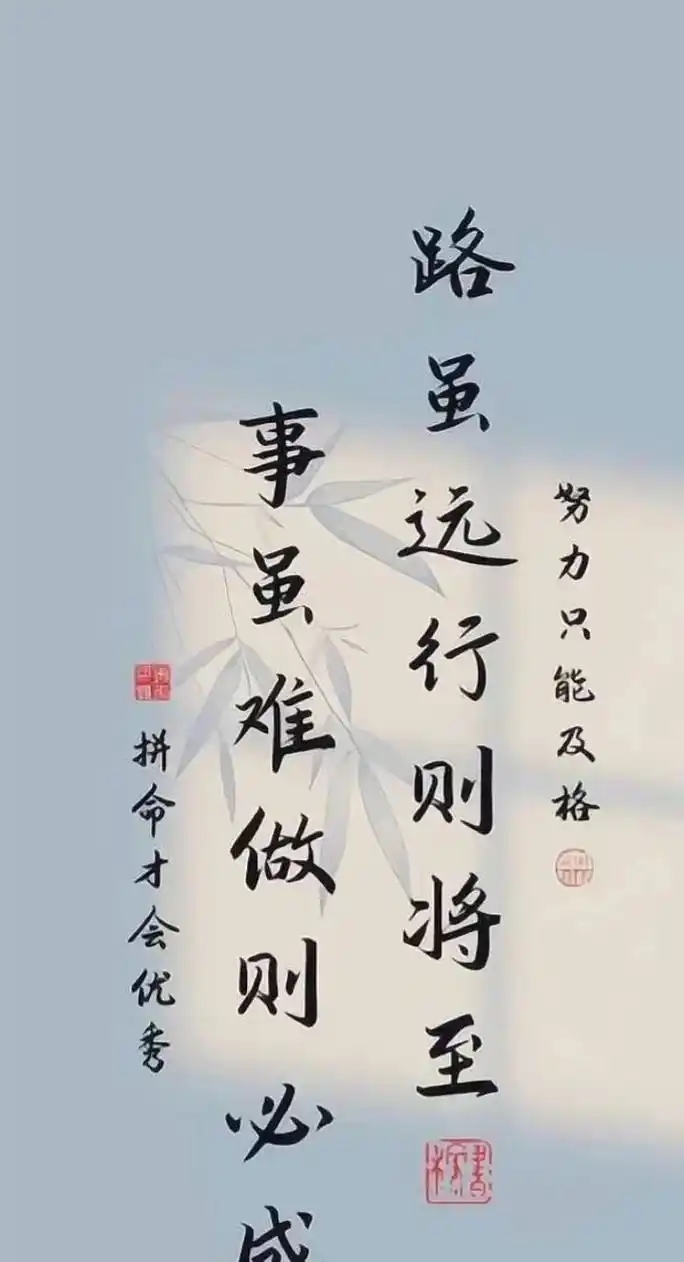 努力只能及格
路虽远行则将至
事虽难做则必成
拼命才会优秀